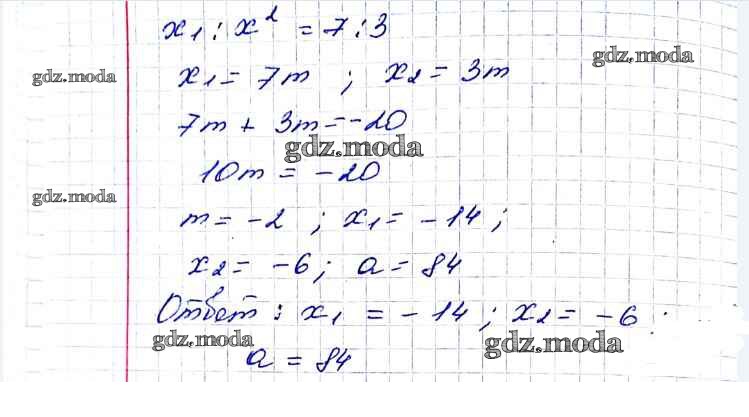 x₁ : x² = 7 : 3
gdz.moda
gdz.moda
x₁ = 7m ; x₂ = 3m
7m + 3m = -20
gdz.moda
10m = -20
gdz.moda
m = -2 ; x₁ = -14 ;
x₂ = -6 ; a = 84
Ответ : x₁ = -14 ; x₂ = -6 ;
gdz.moda
gdz.moda
a = 84